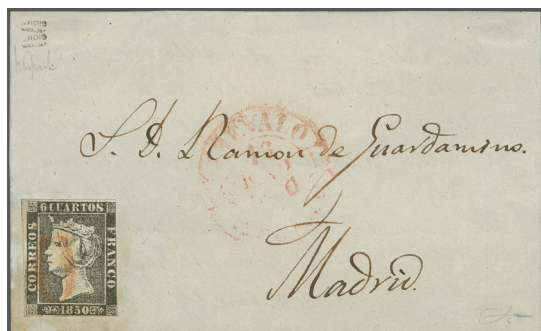 S. D. Ramon de Guardamino.
Madrid.
6 CUARTOS
CORREOS
FRANCO
1850